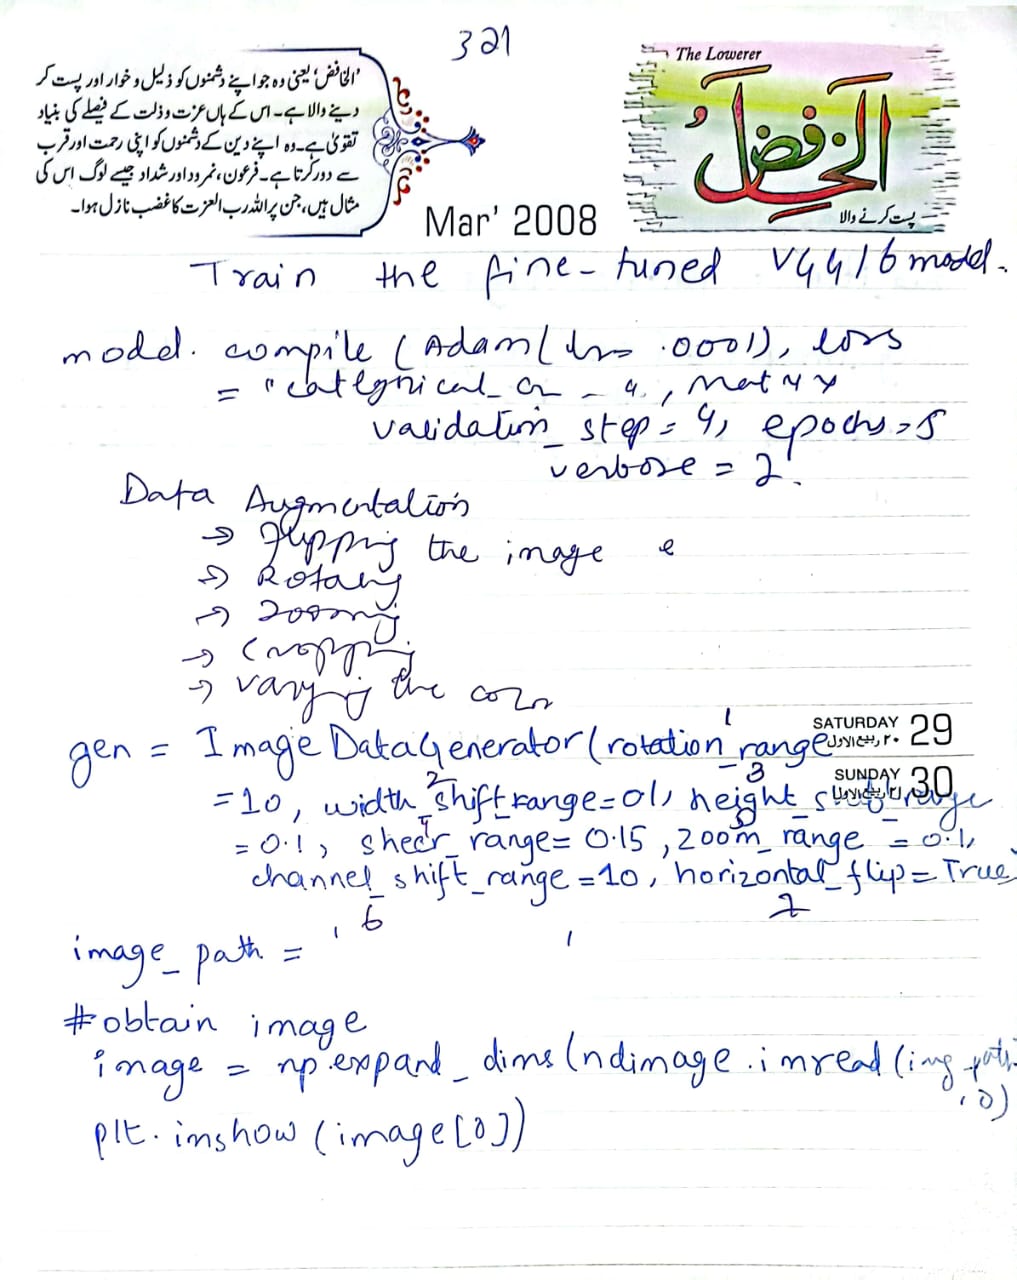 321
'الخافض' یعنی وہ جو اپنے دشمنوں کو ذلیل و خوار اور پست کر
دینے والا ہے۔ اس کے ہاں عزت و ذلت کے فیصلے کی بنیاد
تقویٰ ہے۔ وہ اپنے دین کے دشمنوں کو اپنی رحمت اور قرب
سے دور کرتا ہے۔ فرعون، نمرود اور شداد جیسے لوگ اس کی
مثال ہیں، جن پر اللہ رب العزت کا غضب نازل ہوا۔
The Lowerer
الخافض
پست کرنے والا
Mar' 2008
Train the fine-tuned VGG16 model.
model. compile (Adam(lr= .0001), loss
= "categorical_
validation_step = 4, epochs=5
verbose = 2.
Data Augmentation
→ Flipping the image
→ Rotating
→ Zooming
→ Cropping
→ Varying the color
SATURDAY 29
gen = ImageDataGenerator(rotation_range
1
SUNDAY 30
2 3
=10, width_shift_range=0.1, height_shift_range
4 5
= 0.1, shear_range= 0.15, zoom_range = 0.1,
channel_shift_range=10, horizontal_flip=True
6 7
image_path = ' '
#obtain image
image = np.expand_dims(ndimage.imread(img_path
,0)
plt.imshow(image[0])